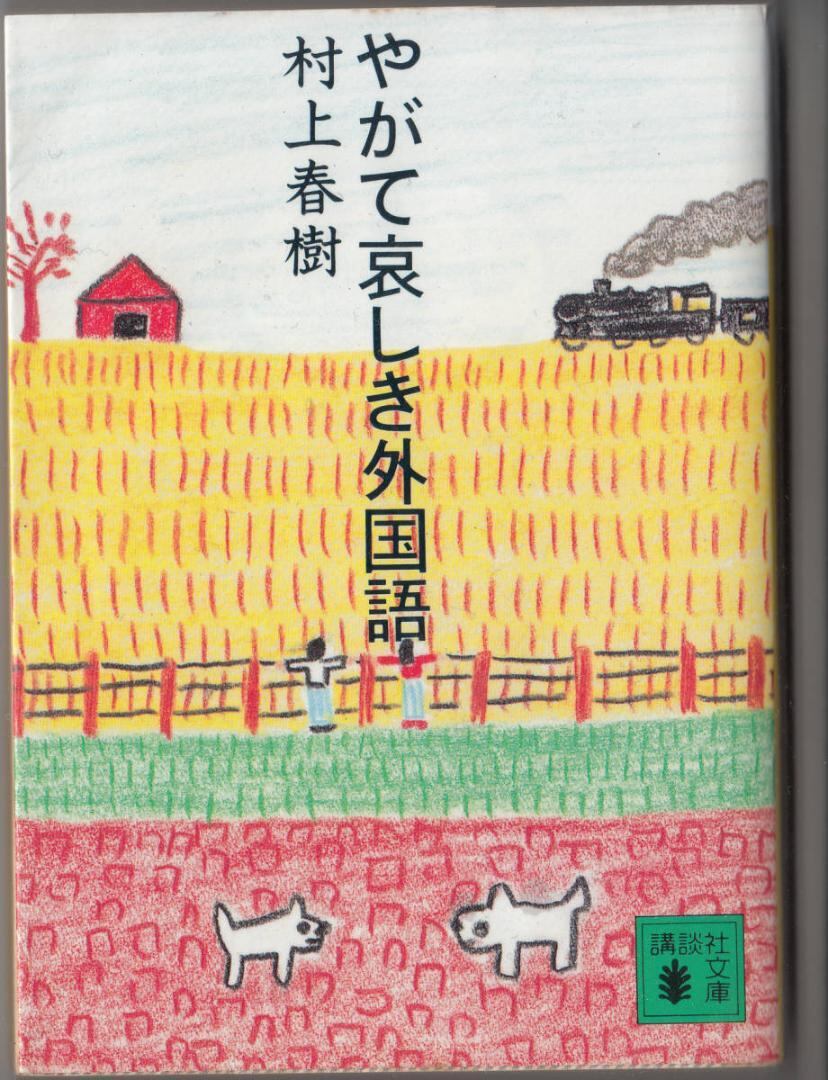 やがて哀しき外国語
村上春樹
講談社
文庫